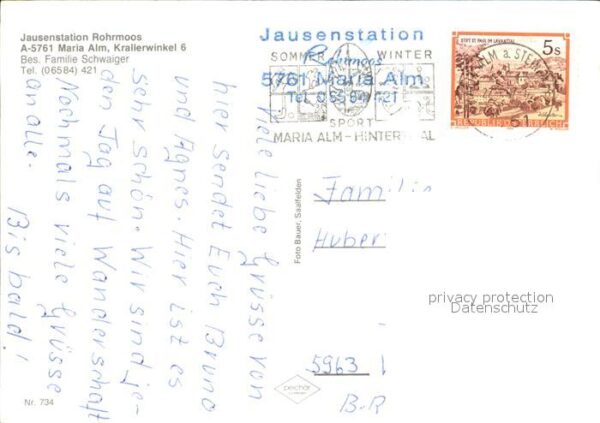 Jausenstation Rohrmoos
A-5761 Maria Alm, Krallerwinkel 6
Bes. Familie Schwaiger
Tel. (06584) 421
Jausenstation
Rohrmoos
5761 Maria Alm
Tel. 06584/421
SOMMER WINTER
SPORT
MARIA ALM - HINTERTAL
STIFT ST. PAUL IM LAVANTTAL
5s
REPUBLIK ÖSTERREICH
Viele liebe Grüsse von
hier sendet Euch Bruno
und Agnes. Hier ist es
sehr schön. Wir sind je-
den Tag auf Wanderschaft
Nochmals viele Grüsse
an alle.
Bis bald!
Foto Bauer, Saalfelden
Familie
Huber
5963
B-R
privacy protection
Datenschutz
Nr. 734